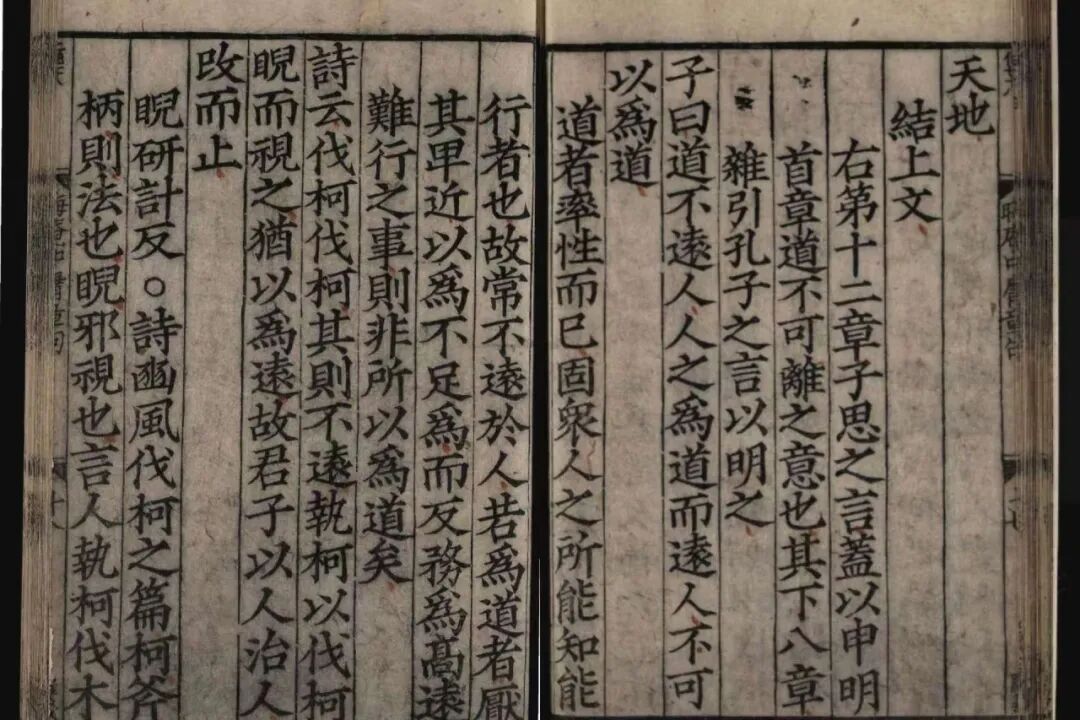 天地
結上文
右第十二章子思之言蓋以申明
首章道不可離之意也其下八章
雜引孔子之言以明之
子曰道不遠人人之爲道而遠人不可
以爲道
道者率性而已固衆人之所能知能
行者也故常不遠於人若爲道者厭
其卑近以爲不足爲而反務爲高遠
難行之事則非所以爲道矣
詩云伐柯伐柯其則不遠執柯以伐柯
睨而視之猶以爲遠故君子以人治人
改而止
睨研計反○詩豳風伐柯之篇柯斧
柄則法也睨邪視也言人執柯伐木